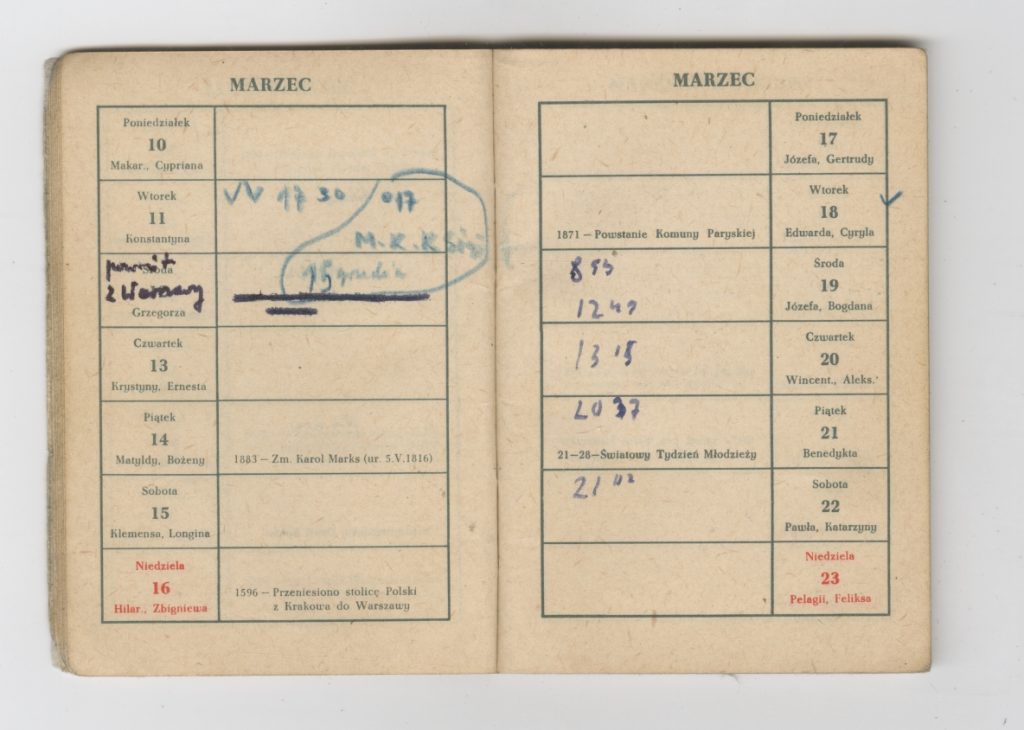 MARZEC
Poniedziałek
10
Makar., Cypriana
Wtorek
11
Konstantyna
17 30
017
M. K. K
15 grudnia
powrót
Środa
z Warszawy
Grzegorza
Czwartek
13
Krystyny, Ernesta
Piątek
14
Matyldy, Bożeny
1883 – Zm. Karol Marks (ur. 5.V.1816)
Sobota
15
Klemensa, Longina
Niedziela
16
Hilar., Zbigniewa
1596 – Przeniesiono stolicę Polski
z Krakowa do Warszawy
MARZEC
Poniedziałek
17
Józefa, Gertrudy
Wtorek
18
Edwarda, Cyryla
1871 – Powstanie Komuny Paryskiej
8 55
12 41
Środa
19
Józefa, Bogdana
13 15
Czwartek
20
Wincent., Aleks.
20 37
21–28–Światowy Tydzień Młodzieży
Piątek
21
Benedykta
21 02
Sobota
22
Pawła, Katarzyny
Niedziela
23
Pelagii, Feliksa